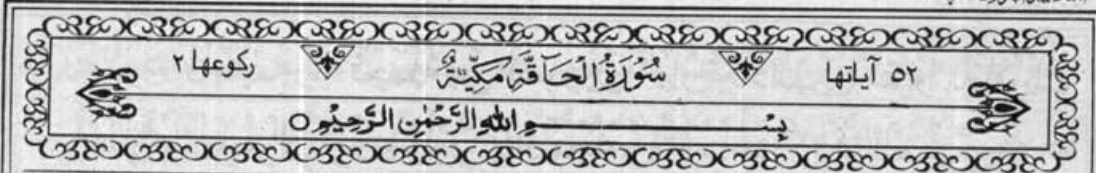 ۵۲ آیاتها سُوْرَةُ الْحَاقَّةِ مَكِّيَّةٌ رکوعها ۲
بِسْمِ اللهِ الرَّحْمٰنِ الرَّحِيْمِ ○